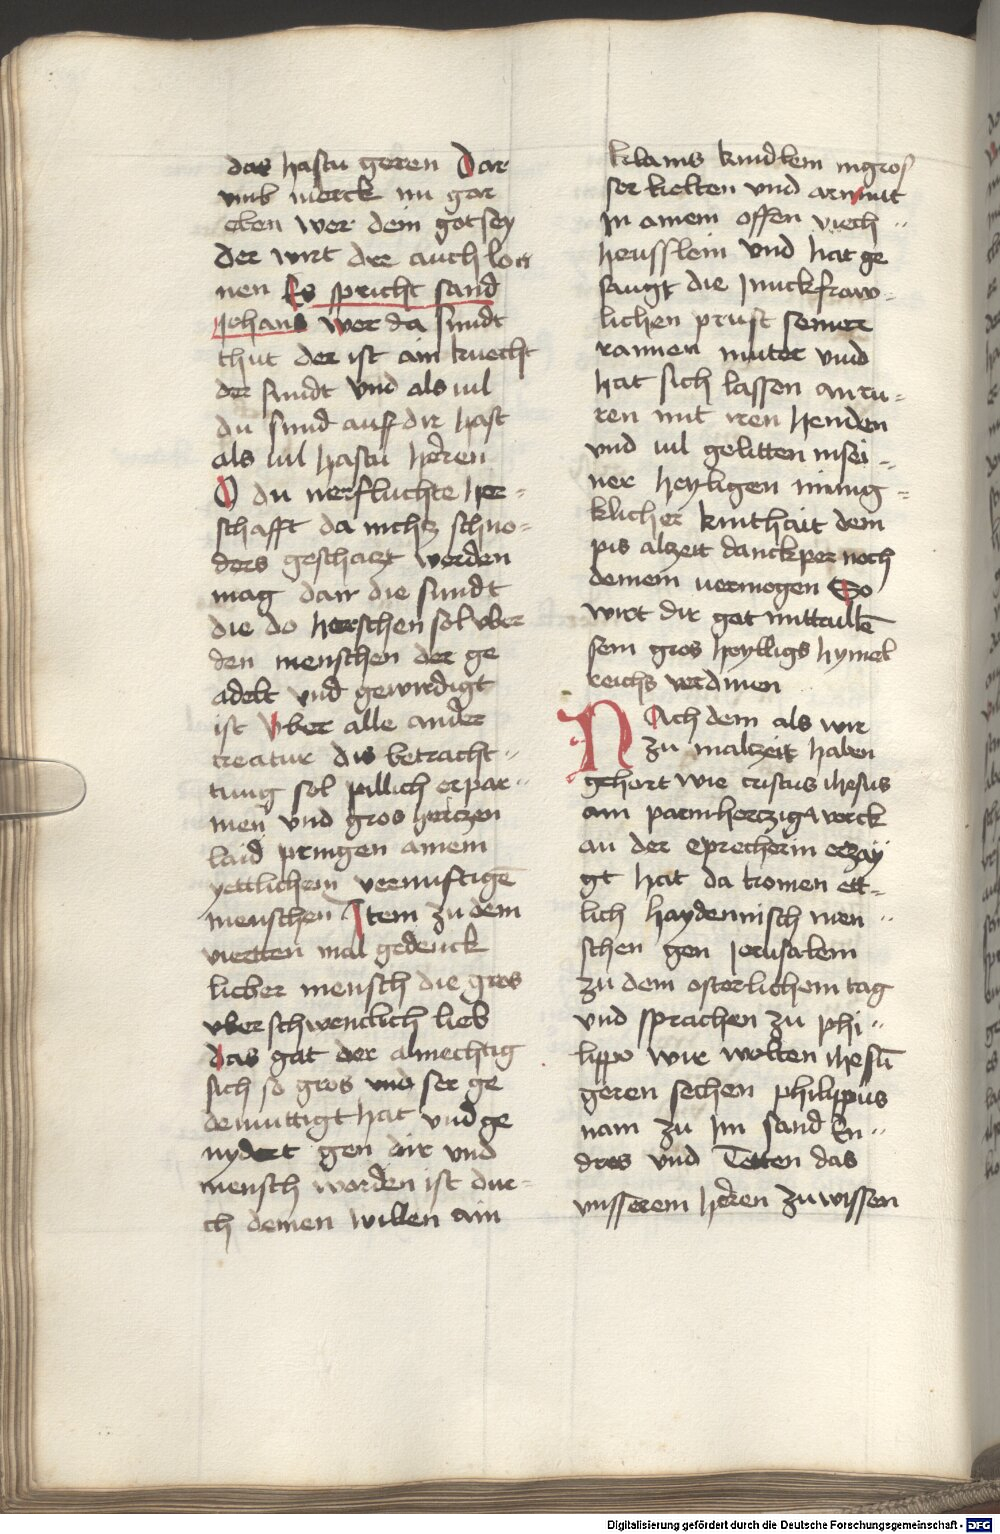 das hastu geren Dar
vmb merck nu gar
eben wer dem got sey
der wirt der auch lon
nen Es spricht sand
Johans wer da sundt
thut der ist ain knecht
der sundt vnd als uil
du sund auff dir hast
als uil hastu heren
O du uerfluchte her-
schafft da nichtz schno-
ders geschaczt werden
mag dan die sundt
die do herschen sol vber
den menschen der ge
adelt vnd gewirdigt
ist vber alle ander
creatur dis betracht-
tung sol pillich erpar-
men vnd gros hertzen
laid pringen ainem
yettlichem vernuftigē
menschen Item zu dem
vierten mal gedenck
lieber mensch die gros
vberschwencklich lieb
das gat der almechtig
sich so gros vnd ser ge
demuttigt hat vnd ge
nydert gen dir vnd
mensch worden ist dur-
ch deinen willen ain
klains kindlein in gros
ser kelten vnd armut
in ainem offen viech-
heusslein vnd hat ge
saugt die Junckfraw-
lichen prust seiner
rainnen muter vnd
hat sich lassen anru-
ren mit iren henden
vnd uil gelitten in sei-
ner heyligen minig-
klicher kinthait dem
pis alzeit danckper noch
deinem uermogen So
wirt dir got mittailē
sein gros heylligs hymel
reichs verdinen
NAch dem als wir
zu malczeit haben
gehort wie cristus ihesus
ain parmhertzigs werck
an der eprecherin erzay
gt hat da komen ett-
lich haydennisch men-
schen gen Jerusalem
zu dem osterlichem tag
vnd sprachen zu phi-
lippo wir wolten ihesū
geren sechen philippus
nam zu im sand En-
dres vnd Tetten das
vnsserem heren zu wissen
Digitalisierung gefördert durch die Deutsche Forschungsgemeinschaft - DFG